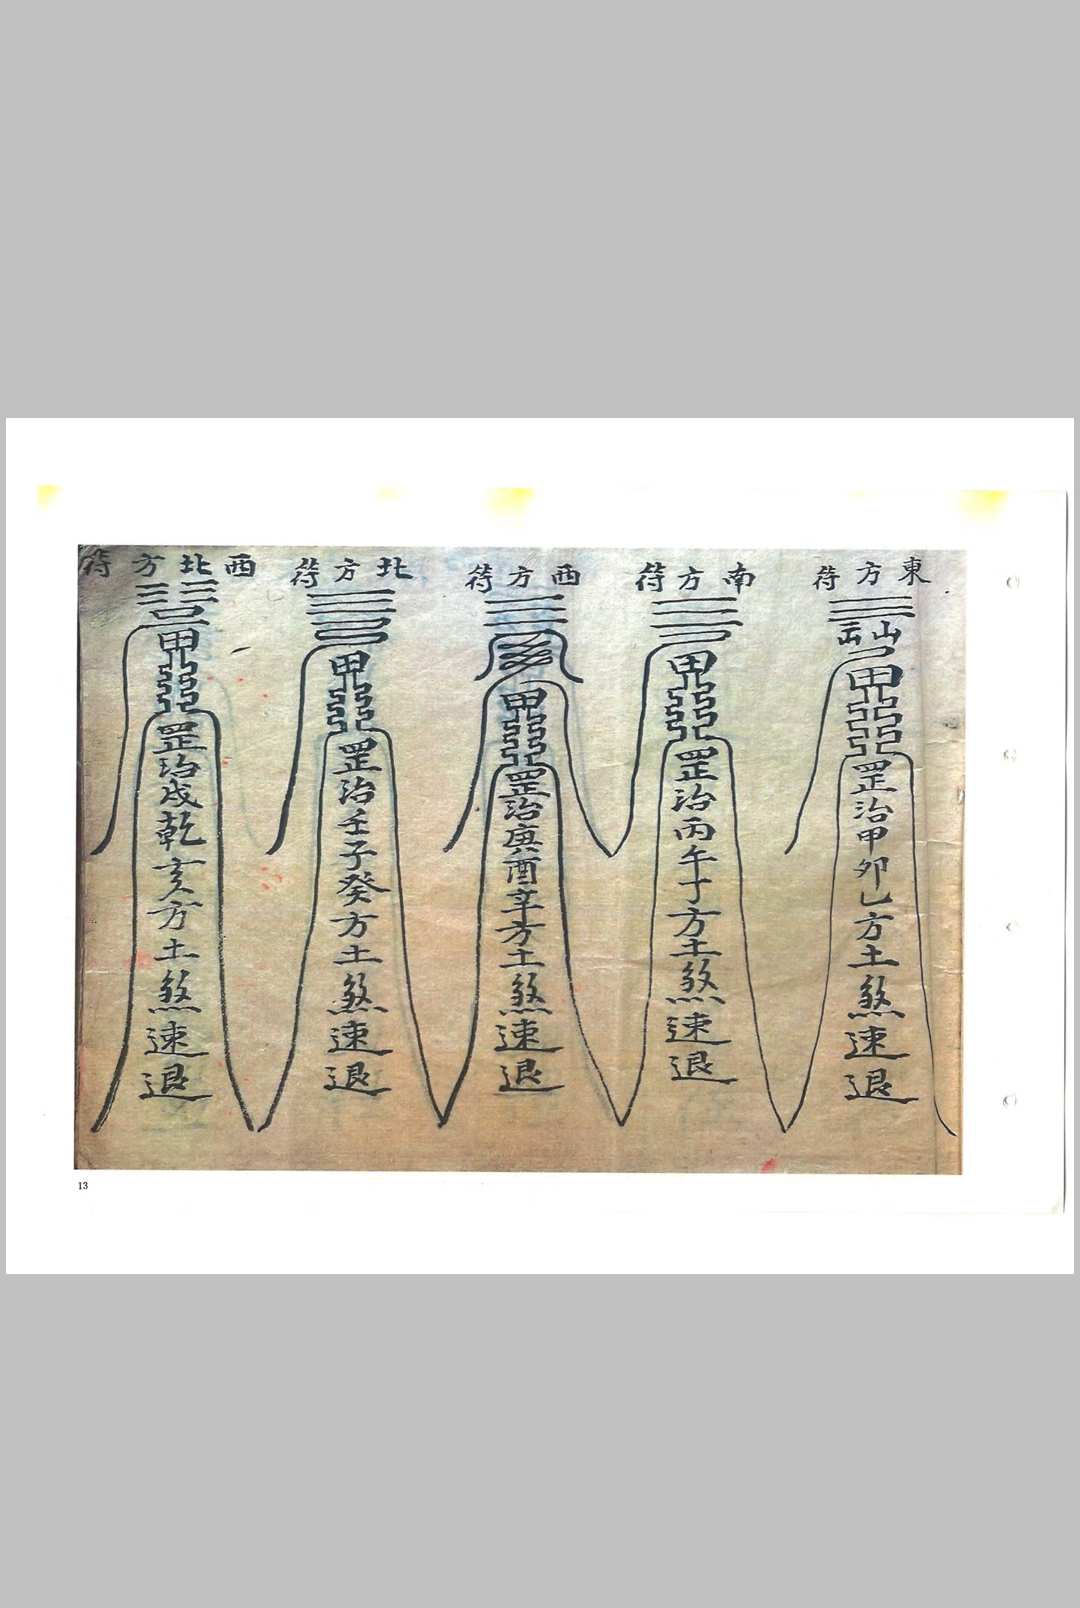 東方符
山
甲
罡治甲卯乙方土煞速退
南方符
甲
罡治丙午丁方土煞速退
西方符
甲
罡治庚酉辛方土煞速退
北方符
甲
罡治壬子癸方土煞速退
西北方符
甲
罡治戌乾亥方土煞速退
13